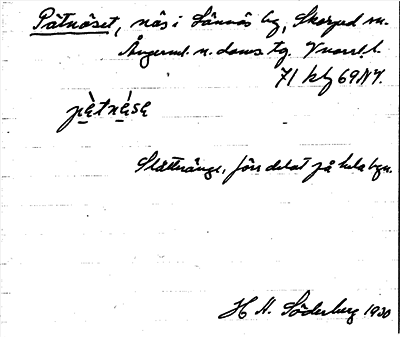 Pätnäset, näs i Sännäs by, Skorped sn.
Ångerml. n. doms tg. Vnorrl. l.
71 kbf 69 NV.
pètnésę
Slåtteränge, förr delat på hela byn.
H. A. Söderberg 1930